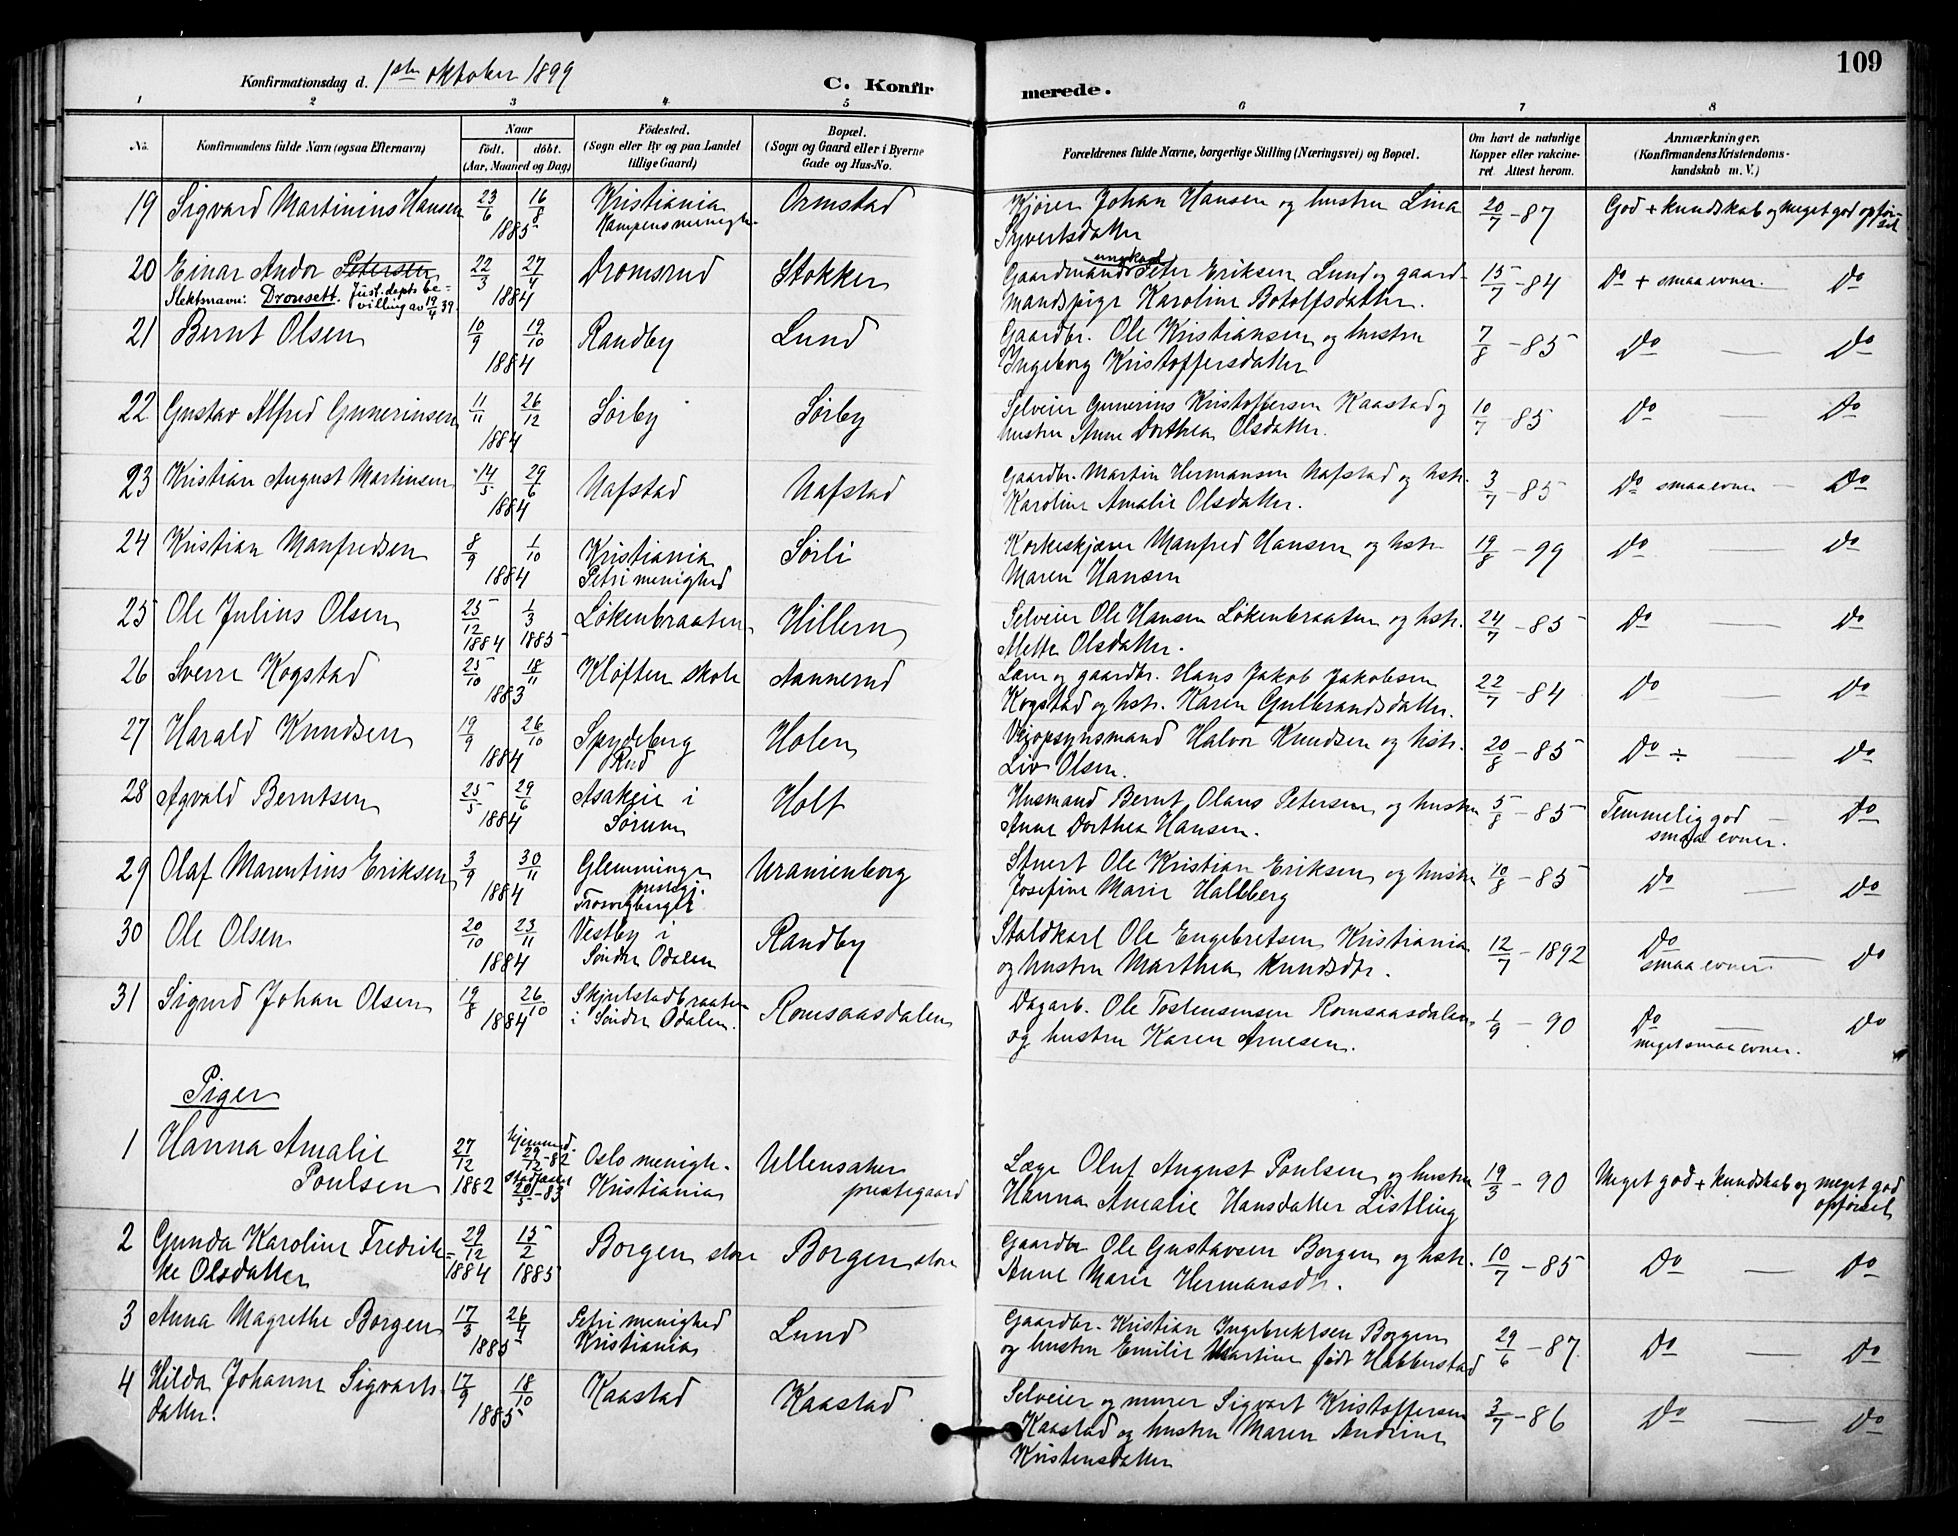 109
Konfirmationsdag d. 1ste oktober 1899
C. Konfirmerede.
1 2 3 4 5 6 7 8
No. Konfirmandens fulde Navn (ogsaa Efternavn) Naar født. døbt. (Aar, Maaned og Dag) Fødested. (Sogn eller By og paa Landet tillige Gaard) Bopæl. (Sogn og Gaard eller i Byerne Gade og Hus-No. Forældrenes fulde Navne, borgerlige Stilling (Næringsvei) og Bopæl. Om havt de naturlige Kopper eller vakcineret. Attest herom. Anmærkninger. (Konfirmandens Kristendomskundskab m. V.)
19 Sigvard Martinius Hansen 23/6 16/8 1885 Kristiania Kampens menigh. Ormstad Kjører Johan Hansen og hustru Lina Syvertsdatter 20/7-87 God + kundskab og meget god opførsel
20 Einar Andor Petersen 22/3 27/4 1884 Dromsrud Stokker Gaardmands ungkarl Peter Eriksen Lund og gaardmandspige Karoline Botolfsdatter. 15/7-84 Do + smaa evner. — Do
Slektsnavn: Dronsett. Just.depts bevilling av 19/4 39.
21 Bernt Olsen 10/9 19/10 1884 Randby Lund Gaardbr. Ole Kristiansen og hustru Ingeborg Kristoffersdatter 7/8-85 Do — Do
22 Gustav Alfred Gunerinsen 11/11 26/12 1884 Sørby Sørby Selveier Gunerius Kristoffersen Kaastad og hustru Anne Dorthea Olsdatter. 10/7-85 Do — Do
23 Kristian August Martinsen 14/5 29/6 1884 Nafstad Nafstad Gaardbr. Martin Hermansen Nafstad og hstr. Karoline Amalie Olsdatter. 3/7-85 Do smaa evner — Do
24 Kristian Manfredsen 8/9 1/10 1884 Kristiania Petri menighed Sørli Korkeskjærer Manfred Hansen og hstr Maren Hansen 19/8-99 Do Do
25 Ole Julius Olsen 25/12 1884 1/3 1885 Løkenbraaten Hillern Selveier Ole Hansen Løkenbraaten og hstr. Mette Olsdatter. 24/7-85 Do — Do
26 Sverre Kogstad 25/10 18/11 1883 Kløften skole Aannerud Lærer og gaardbr. Hans Jakob Jakobsen Kogstad og hstr. Karen Gulbrandsdatter. 22/7-84 Do — Do
27 Harald Knudsen 19/9 26/10 1884 Spydeberg Rud Holen Veiopsynsmand Halvor Knudsen og hstr. Liv Olsen. 20/8-85 Do ÷ Do
28 Agvald Berntsen 25/5 29/6 1884 Asakeie i Sørum Holt Husmand Bernt Olaus Petersen og hustru Anne Dorthea Hansen. 5/8-85 Temmelig god smaa evner. — Do
29 Olaf Marentius Eriksen 3/9 30/11 1884 Glemminge prestegj. Trosvigberget Uranienborg Stuert Ole Kristian Eriksen og hustru Josefine Marie Hallberg 10/8-85 Do — Do
30 Ole Olsen 20/10 23/11 1884 Vestby i Søndre Odalen Randby Staldkarl Ole Engebretsen Kristiania og hustru Marthea Knudsdtr. 12/7-1892 Do smaa evner — Do
31 Sigurd Johan Olsen 19/8 26/10 1884 Skjulstadbraaten i Søndre Odalen. Romsaasdalen Dagarb. Ole Tostensensen Romsaasdalen og hustru Karen Arnesen. 1/9-90 Do meget smaa evner. — Do
Piger
1 Hanna Amalie Poulsen 27/12 1882 hjemmed. 29/12-82 stadfæstet 20/5-83 Oslo menigh. Kristiania Ullensaker prestegaard Læge Oluf August Poulsen og hustru Hanna Amalie Hansdatter Listling 19/3-90 Meget god + kundskab og meget god opførsel
2 Gunda Karoline Fredrikke Olsdatter 29/12 1884 15/2 1885 Borgen store Borgen store Gaardbr Ole Gustavsen Borgen og hstr. Anne Marie Hermansdtr. 10/7-85 Do — Do
3 Anna Magrethe Borgen 17/3 26/4 1885 Petri menighed Kristiania Lund Gaardbr. Kristian Ingebrektsen Borgen og hustru Emilie Martine født Habberstad 29/6-87. Do — Do
4 Hilda Johanne Sigvartsdatter. 17/9 18/10 1885 Kaastad Kaastad Selveier og murer Sigvart Kristoffersen Kaastad og hustru Maren Andrine Kristensdatter 3/7-86 Do — Do